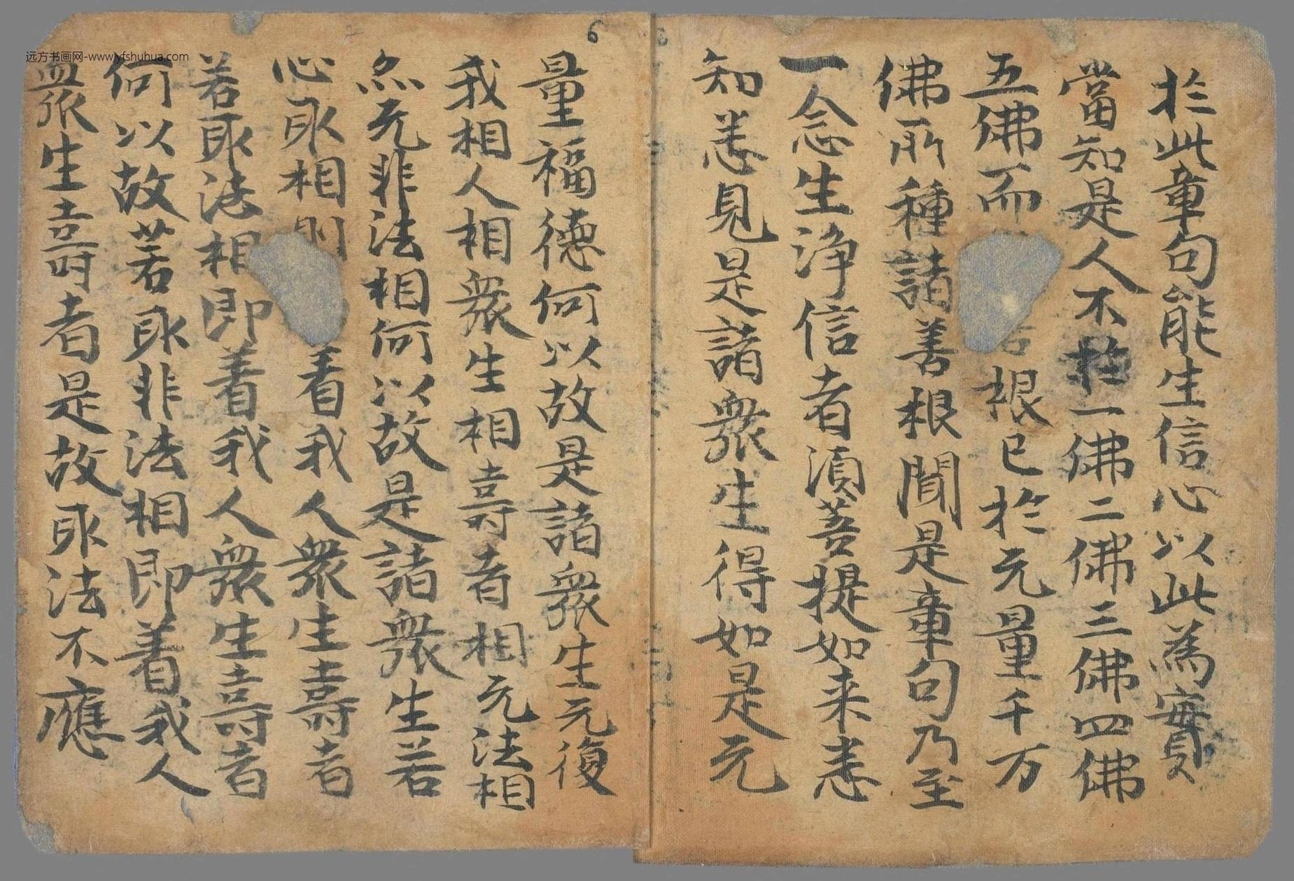 於此章句能生信心以此為實
當知是人不於一佛二佛三佛四佛
五佛而根已於无量千万
佛所種諸善根聞是章句乃至
一念生淨信者湏菩提如来悉
知悉見是諸衆生得如是无
量福德何以故是諸衆生无復
我相人相衆生相壽者相无法相
亦无非法相何以故是諸衆生若
心取相則着我人衆生壽者
若取法相即着我人衆生壽者
何以故若取非法相即着我人
衆生壽者是故取法不應
6
远方书画网-www.yfshuhua.com